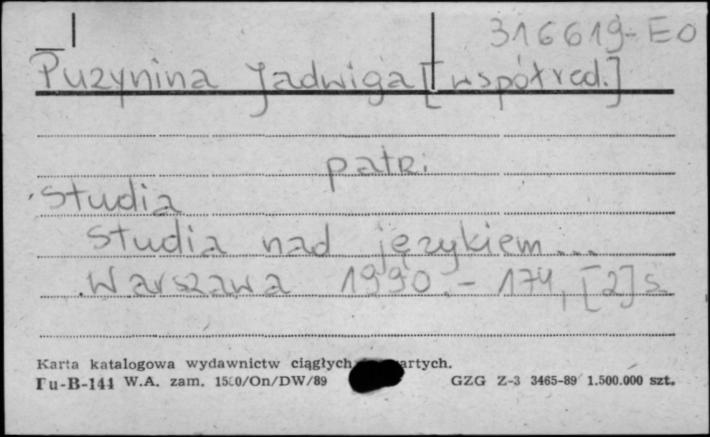 316619-EO
Puzynina Jadwiga [współred.]
patr.
Studia
Studia nad językiem...
Warszawa 1990.- 174, [2] s.
Karta katalogowa wydawnictw ciągłych artych.
Fu-B-144 W.A. zam. /On/DW/89 GZG Z-3 3465-89 1.500.000 szt.